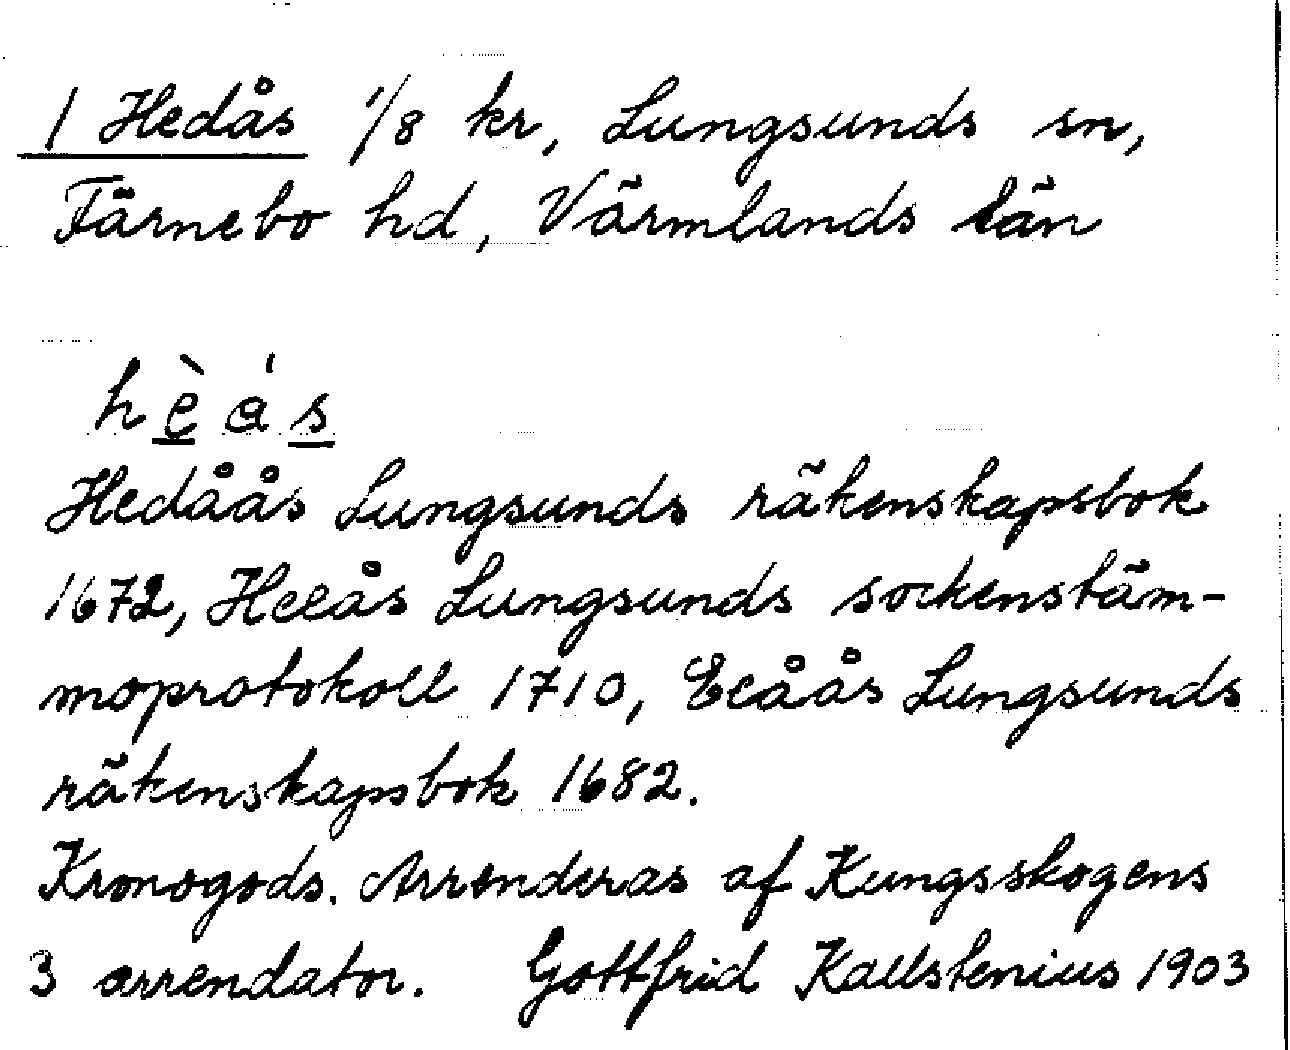 1 Hedås 1/8 kr, Lungsunds sn,
Färnebo hd, Värmlands län
hè̱ a̍ s̱
Hedåås Lungsunds räkenskapsbok
1672, Heeås Lungsunds sockenstäm-
moprotokoll 1710, Eeåås Lungsunds
räkenskapsbok 1682.
Kronogods. Arrenderas af Kungsskogens
3 arrendator. Gottfrid Kallstenius 1903